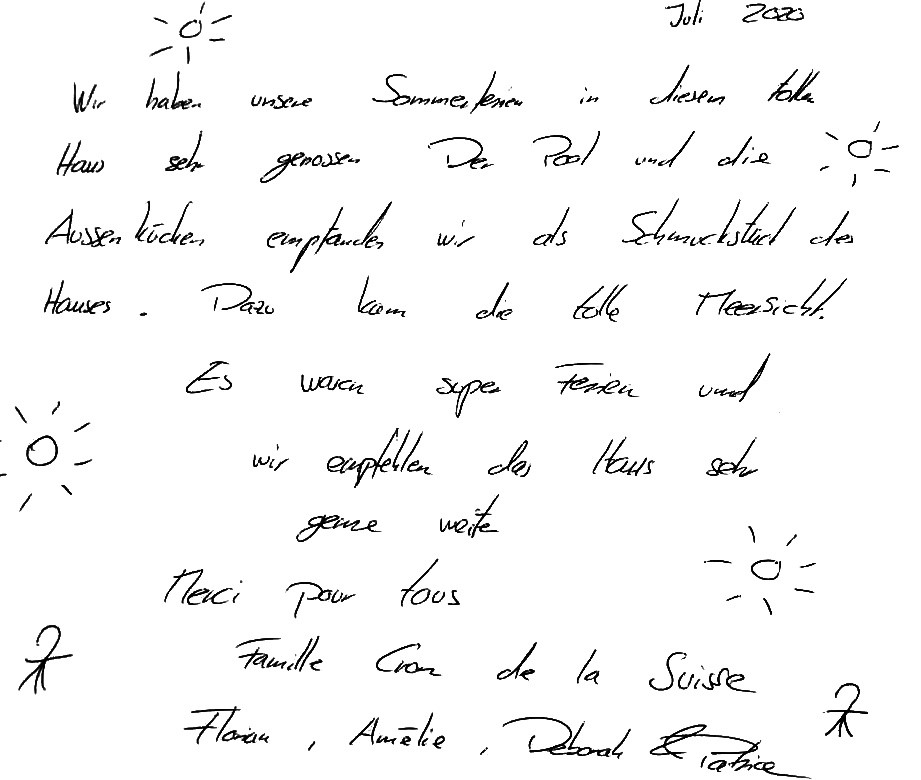 Juli 2020
Wir haben unsere Sommerferien in diesem tollen
Haus sehr genossen Der Pool und die
Aussenküchen empfanden wir als Schmuckstück des
Hauses. Dazu kam die tolle Meersicht.
Es waren super Ferien und
wir empfehlen das Haus sehr
gerne weiter
Merci pour tous
Famille de la Suisse
Florian, Amélie, Deborah & Patrice